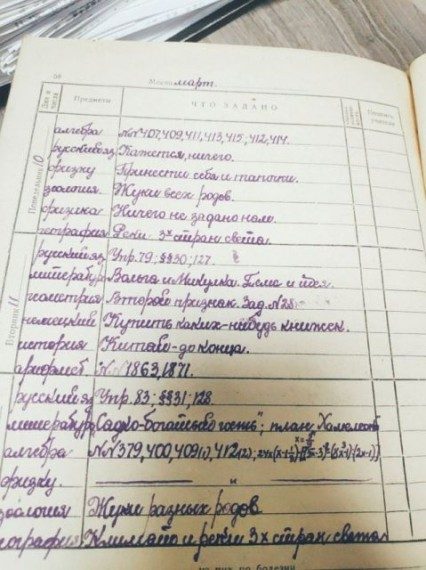 58
Месяц март.
Дни и числа Предметы ЧТО ЗАДАНО Подпись учителя
Понедельник 10
алгебра №№407,409,411,413,415,412,414.
русский яз Кажется, ничего.
физку Принести себя и тапочки.
зоология Жуки всех родов.
физика Ничего не задано нам.
география Реки 3х стран света.
Вторник 11
русский яз Упр. 79; §§30; 127.
литература Вольга и Микула. Тема и идея.
геометрия Второй признак. Зад. №28.
немецкий Купить каких-нибудь книжек.
история Китай - до конца.
арифмет. №№1863,1871.
русский яз Упр. 83; §§31; 128.
литература Садко-богатый гость"; план, Хамелеон
алгебра №№379,400,409(1), 412(2);
физку. "
зоология Жуки разных родов.
география Климат и реки 3х стран света.